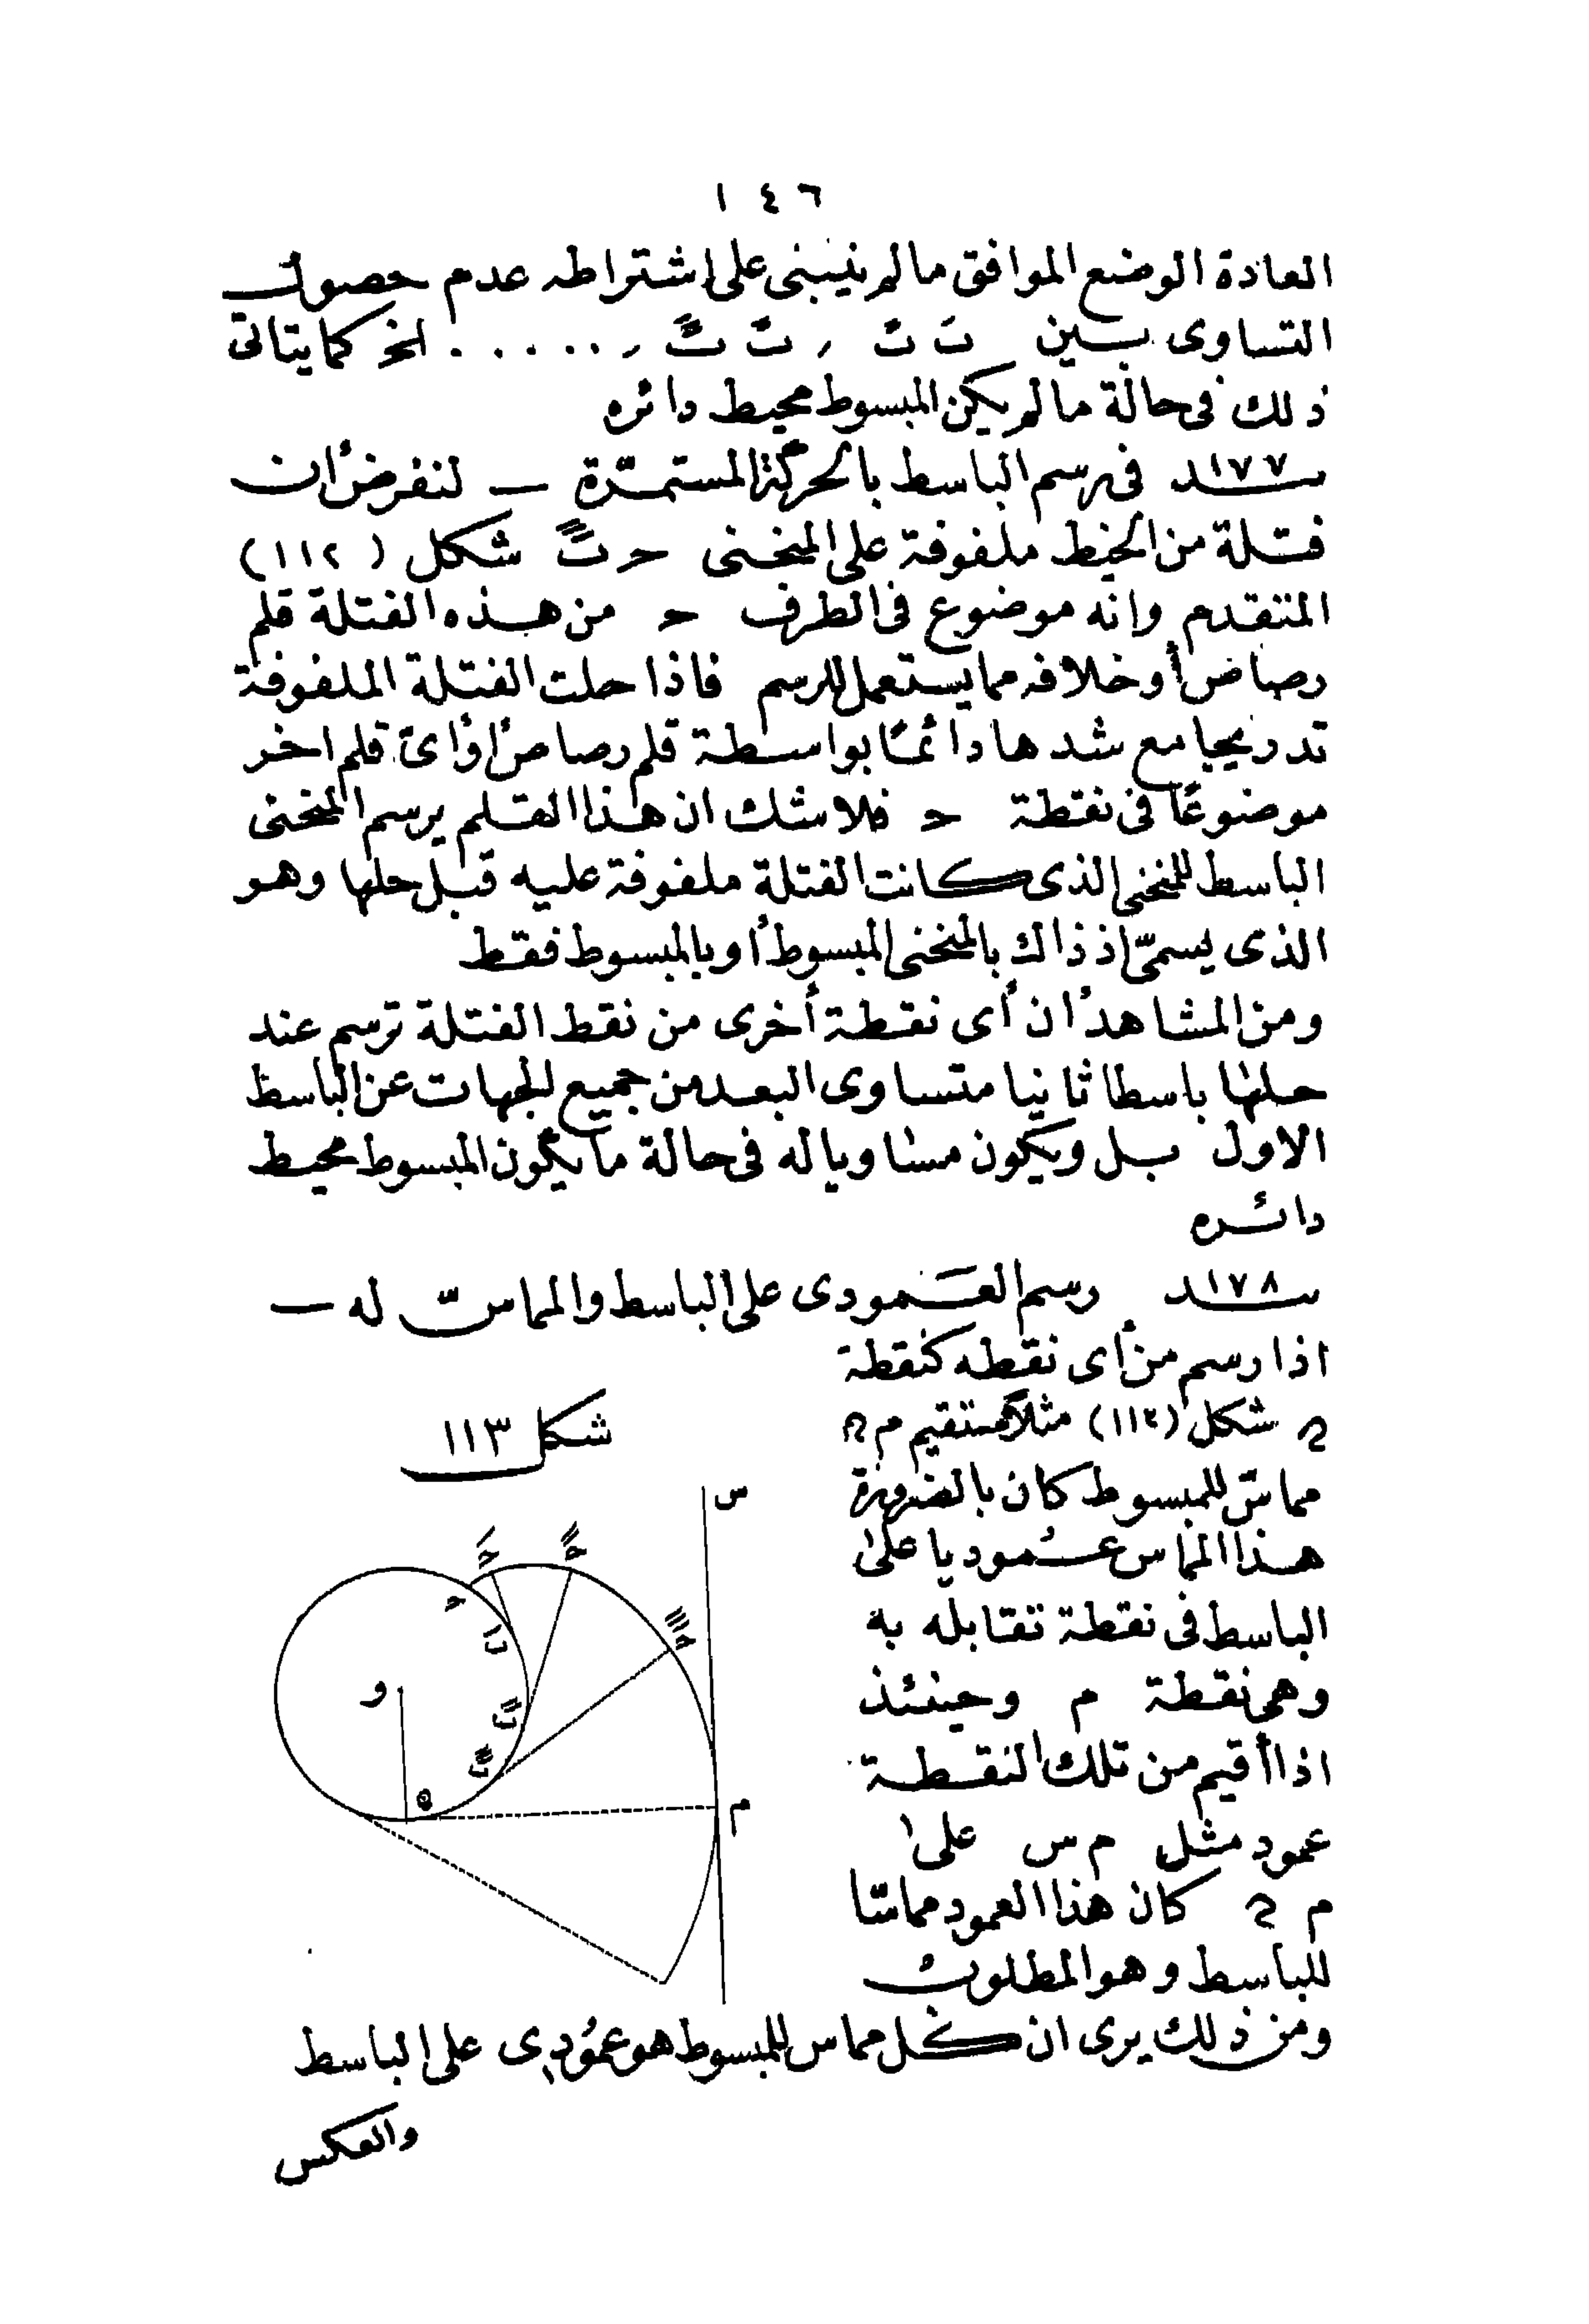 ١٤٦
العادة الوضع الموافق مالم ينبنى على اشتراطه عدم حصول
التساوى بين تَ تً , تً تً , ..... الخ كما يتاتى
ذلك فى حالة مالم يكن المبسوط محيط دائره
١٧٧ـند فى رسم الباسط بالحركة المستمرّة ـ لنفرض أن
فتلة من الخيط ملفوفة على المنحنى حرتً شكل (١١٢)
المتقدم وانه موضوع فى الطرف ح من هذه الفتلة قلم
رصاص أو خلافه مما يستعمل للرسم فاذا حلت الفتلة الملفوفة
تدريجيا مع شدها دائمًا بواسطة قلم رصاص أو أىّ قلم اخر
موضوعًا فى نقطة ح فلا شك ان هذا القلم يرسم المنحنى
الباسط للمنحنى الذى كانت الفتلة ملفوفة عليه قبل حلها وهو
الذى يسمىّ اذ ذاك بالمنحنى المبسوط أو بالمبسوط فقط
ومن المشاهد أن أى نقطة أخرى من نقط الفتلة ترسم عند
حلها باسطا ثانيا متساوى البعد من جميع الجهات عن الباسط
الاول بل ويكون مساويا له فى حالة ما يكون المبسوط محيط
دائره
١٧٨ـند رسم العَمودى على الباسط والمماسّ له ـ
اذا رسم من أى نقطه كنقطة
ه شكل (١١٣) مثلا مستقيم م ه
مماسّ للمبسوط كان بالضرورة
هذا المماس عُموديا على
الباسط فى نقطة تقابله به
وهى نقطة م وحينئذ
اذا أقيم من تلك النقطة
عمود مثل م س على
م ه كان هذا العمود مماسّا
للباسط وهو المطلوب
شكل ١١٣
س
ح
و
ه
م
ومن ذلك يرى ان كل مماس للمبسوط هو عمُودى على الباسط
والعكس